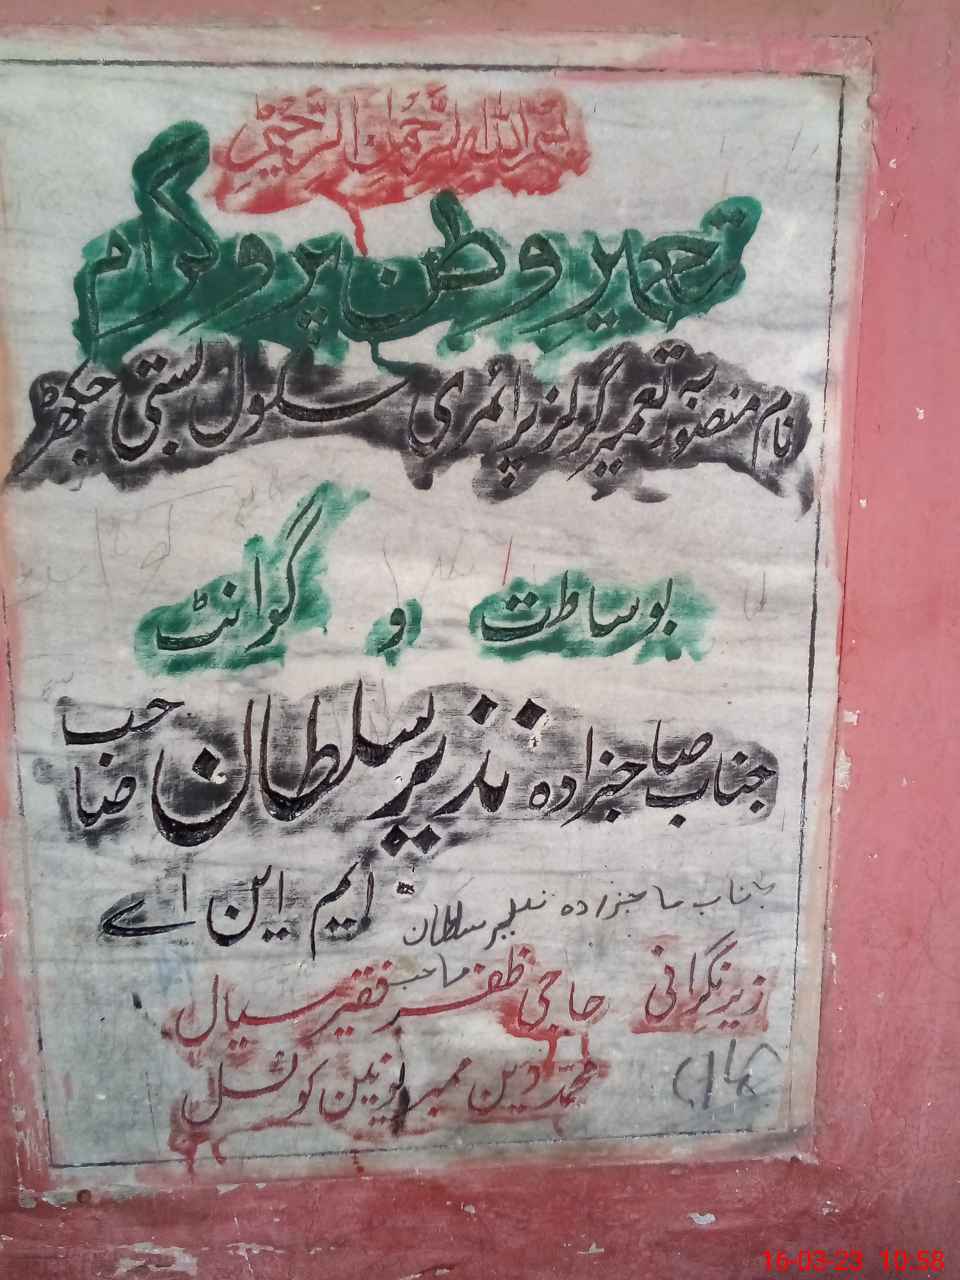 بسم اللہ الرحمن الرحیم
تعمیر وطن پروگرام
نام منصوبہ تعمیر گرلز پرائمری سکول بستی جکھڑ
بوساطت و گرانٹ
جناب صاحبزادہ نذیر سلطان صاحب
ایم این اے
جناب صاحبزادہ نذیر سلطان
صاحب
زیر نگرانی حاجی ظفر فقیر سیال
محمد دین ممبر یونین کونسل
16-03-23 10:58